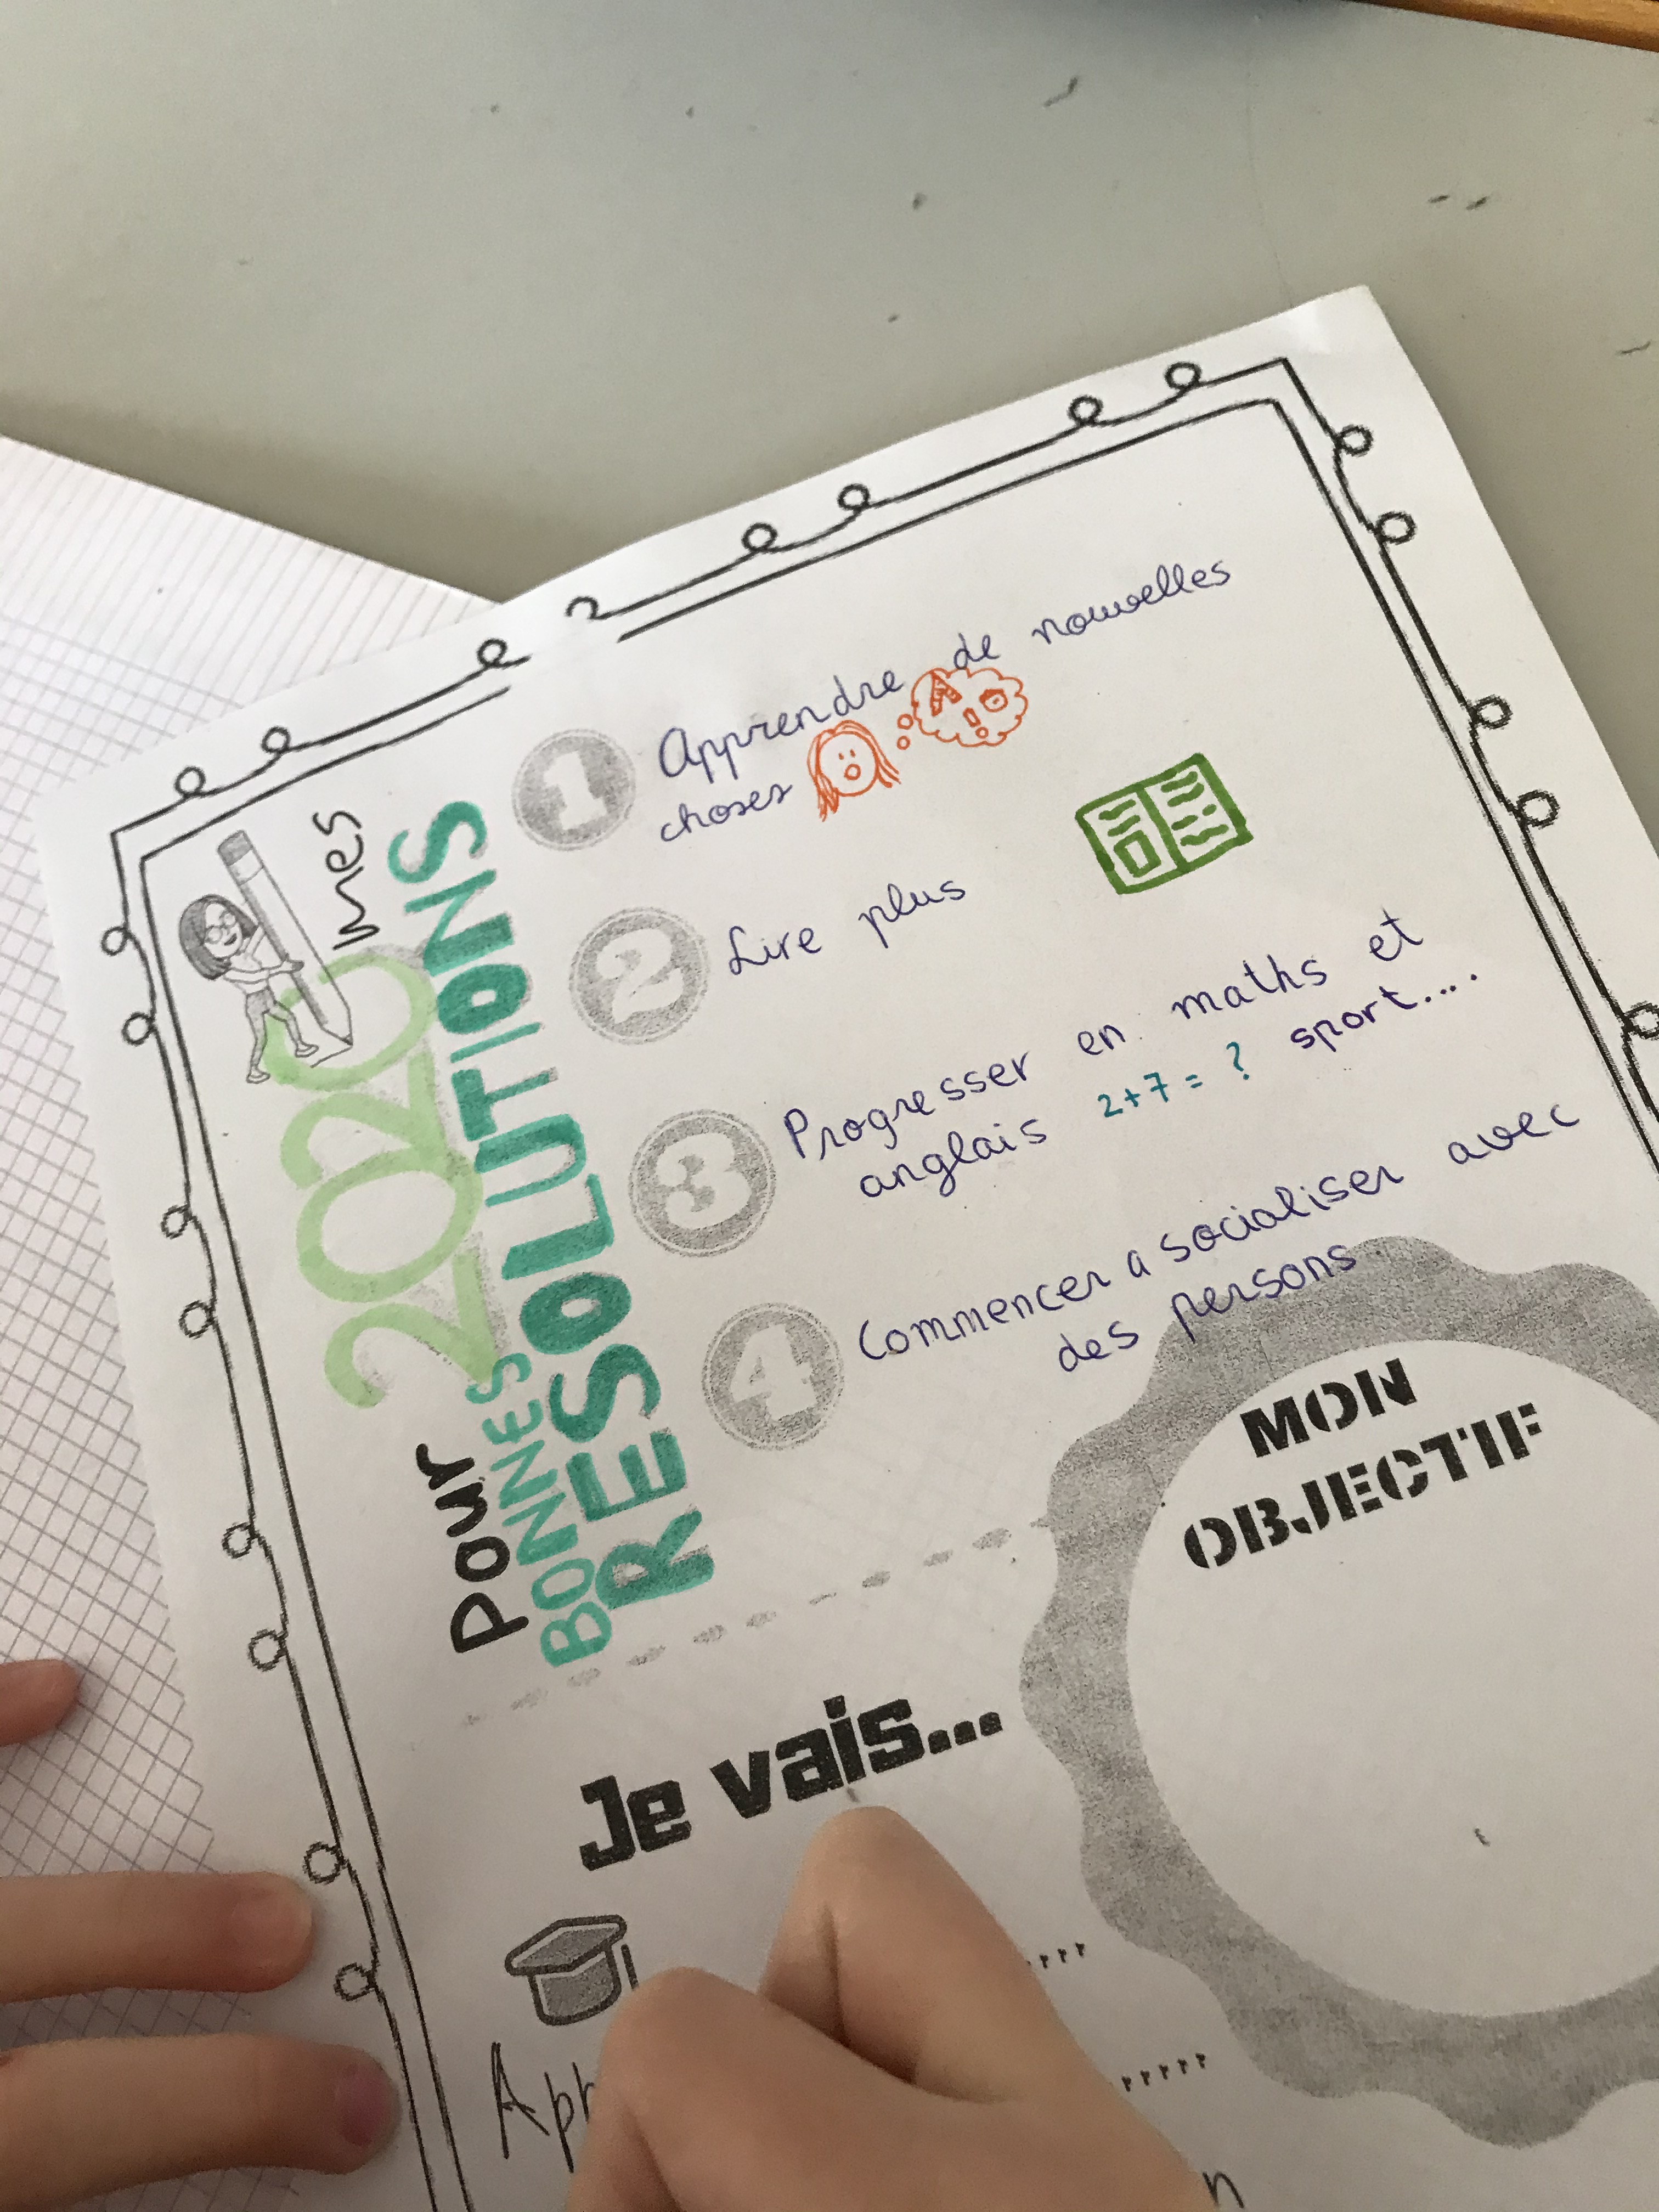 mes
BONNES
RESOLUTIONS
Pour 2020
1 Apprendre de nouvelles
choses
2 Lire plus
3 Progresser en maths et
anglais 2+7 = ? sport....
4 Commencer a socialiser avec
des persons
MON
OBJECTIF
Je vais...